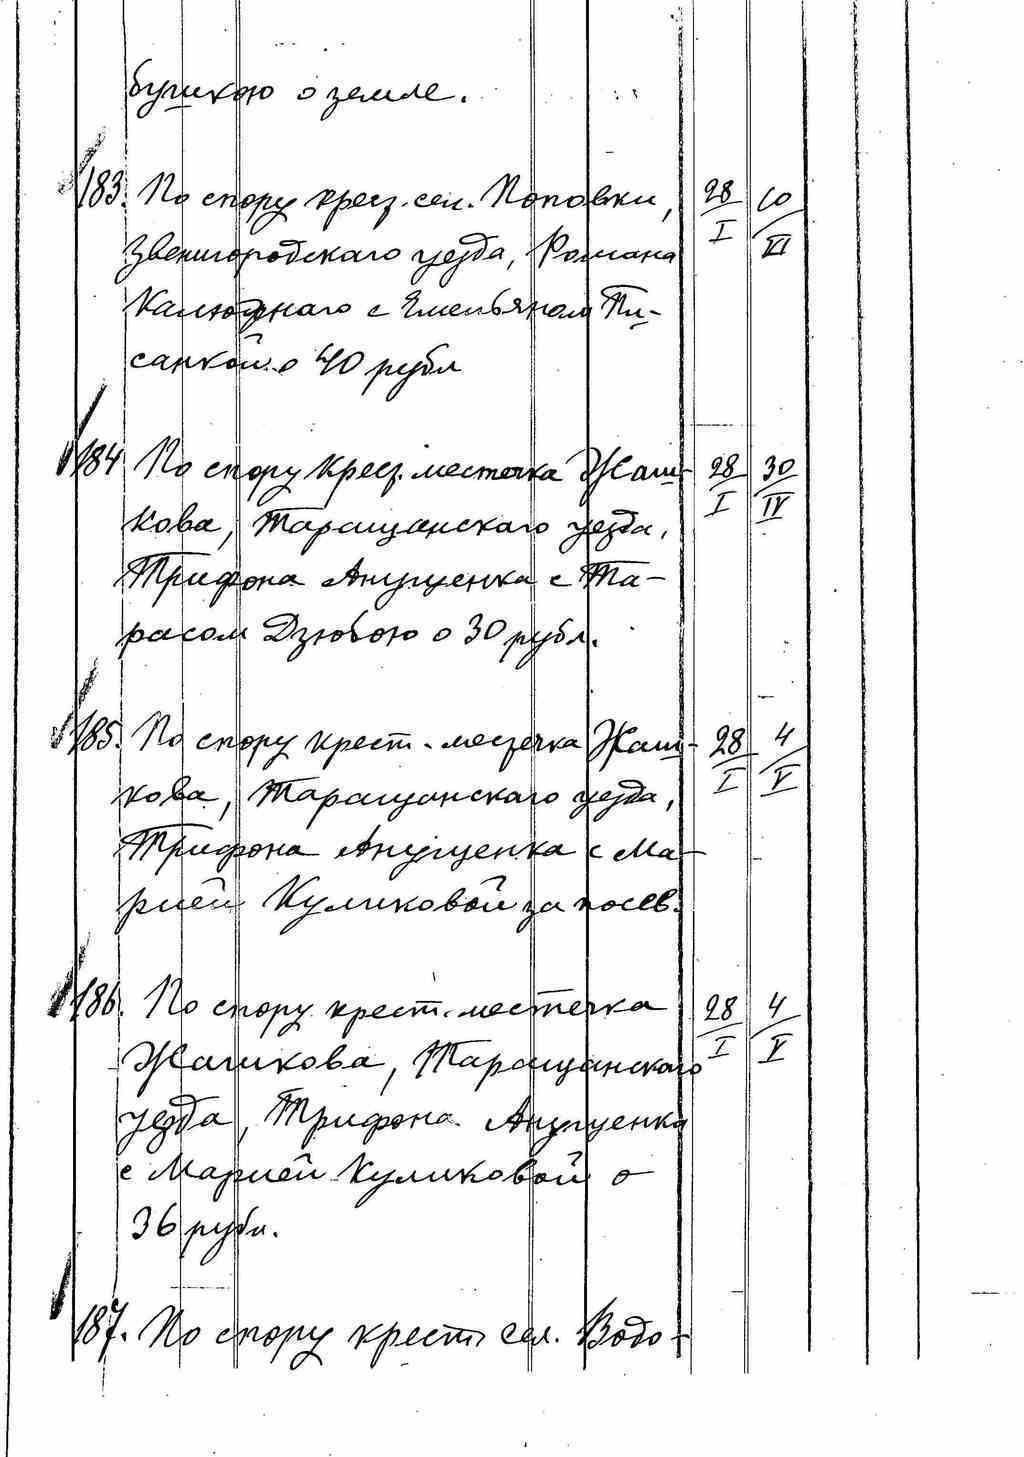 бушкою о земле.
183. По спору крест. сел. Поповки, 28/I 10/XI
Звенигородскаго уезда, Романа
Калюжнаго с Емельяном Пи-
санкой о 40 рубл
184 По спору крест. местечка Жаш- 28/I 30/IV
кова, Таращанскаго уезда,
Трифона Анущенка с Та-
расом Дзюбою о 30 рубл.
185. По спору крест. местечка Жаш- 28/I 4/V
кова, Таращанскаго уезда,
Трифона Анущенка с Ма-
рией Куликовой за посев.
186. По спору крест. местечка 28/I 4/V
Жашкова, Таращанскаго
уезда, Трифона Анущенка
с Марией Куликовой о
36 рубл.
187. По спору крест. сел. Водо-